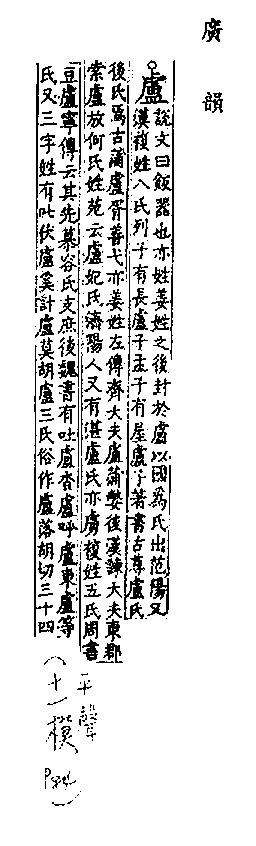 廣韻
盧
說文曰飯器也亦姓姜姓之後封於盧以國爲氏出范陽又
漢複姓八氏列子有長盧子孟子有屋盧子著書古尊盧氏
後氏焉古蒲盧胥善弋亦姜姓左傳齊大夫盧蒲嫳後漢諫大夫東郡
索盧放何氏姓苑云盧妃氏濟陽人又有湛盧氏亦虜複姓五氏周書
豆盧寧傳云其先慕容氏支庶後魏書有吐盧沓盧呼盧東盧等
氏又三字姓有吐伏盧奚計盧莫胡盧三氏俗作盧落胡切三十四
平聲
(十一)模